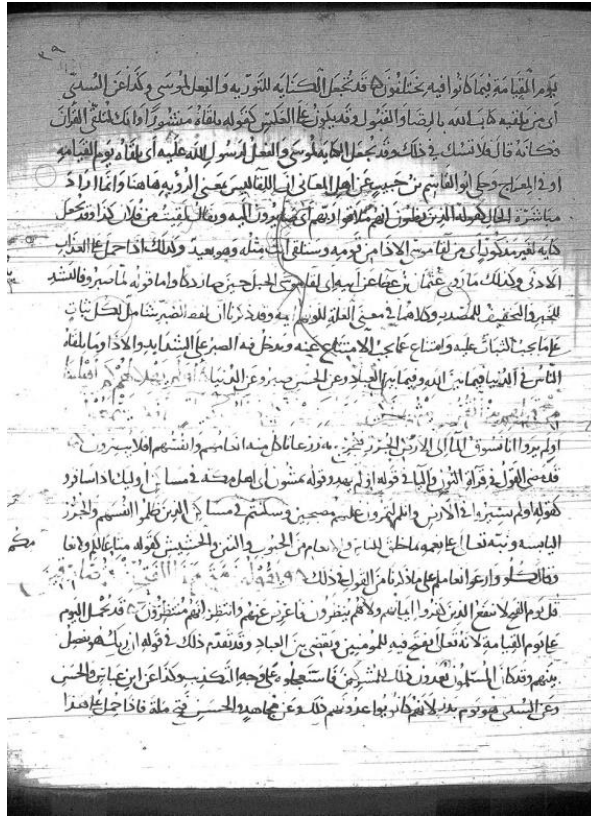 يوم القيامة فيما كانوا فيه يختلفون قد تجعل الكناية للتورية والفعل لموسى وكذا عن السدي
أي من تلقيه كتاب الله بالرضا والقبول وقد يكون على القلب كقوله يلقاه منشورا وانك لتلقى القرآن
فكأنه قال فلا تشك في ذلك وقد تجعل الكناية لموسى والفعل لرسول الله عليه أي يلقاه يوم القيامة
او في المعراج وحكى ابو القاسم بن حبيب عن اهل المعاني ان اللقا ليس يعني الرؤية هاهنا وانما اراد
مباشرة الحال كقوله الذين يظنون انهم ملاقوا ربهم أي صايرون اليه ويقال لقيت من فلان كذا وقد تجعل
كناية لغير مذكور أي من لقا موسى الاذا من قومه وستلقى انت مثله وهو بعيد وكذلك اذا حمل على العذاب
الادنى وكذلك ما روى عثمان بن عطا عن ابيه أي لقا موسى الجبل حين صار دكا واما قوله لما صبروا فالتشديد
للخبر والتخفيف للمصدر وكلاهما في معنى العلة وقد ذكرنا ان لفظ الصبر شامل لكل ثبات
على ما يجب الثبات عليه وامتناع عما يجب الامتناع عنه ويدخل فيه الصبر على الشدايد والاذا وما يلقاه
الناس في الدنيا فيما بين الله وفيما بين العباد وعن الحسن صبروا عن الدنيا اولم يهد لهم كم اهلكنا
اولم يروا انا نسوق الما الى الارض الجرز فنخرج به زرعا تاكل منه انعامهم وانفسهم افلا يبصرون
قد مضى القول في قراة النون واليا في قوله اولم يهد وقوله يمشون أي اهل مكة في مساكن اوليك اذا سافروا
كقوله اولم يسيروا في الارض وانكم لتمرون عليهم مصبحين وسكنتم في مساكن الذين ظلموا انفسهم والجرز
اليابسة ونبه تعالى على نعمه وما خلق للناس والانعام من الحبوب والتبن والحشيش كقوله متاعا لكم ولانعامكم
وقال كلوا وارعوا انعامكم على ما ذكرنا من القول في ذلك
قل يوم الفتح لا ينفع الذين كفروا ايمانهم ولا هم ينظرون فاعرض عنهم وانتظر انهم منتظرون قد تحمل اليوم
على يوم القيامة لانه تعالى يفتح فيه للمومنين ويقضي بين العباد وقد تقدم ذلك في قوله ان ربك هو يفصل
بينهم وقد كان المسلمون يعدون ذلك للمشركين فاستعجلوه على وجه التكذيب وكذا عن ابن عباس والحسن
وعن السدي هو يوم بدر لانهم كانوا يواعدونهم ذلك وعن مجاهد والحسن فتح مكة فاذا حمل على هذا